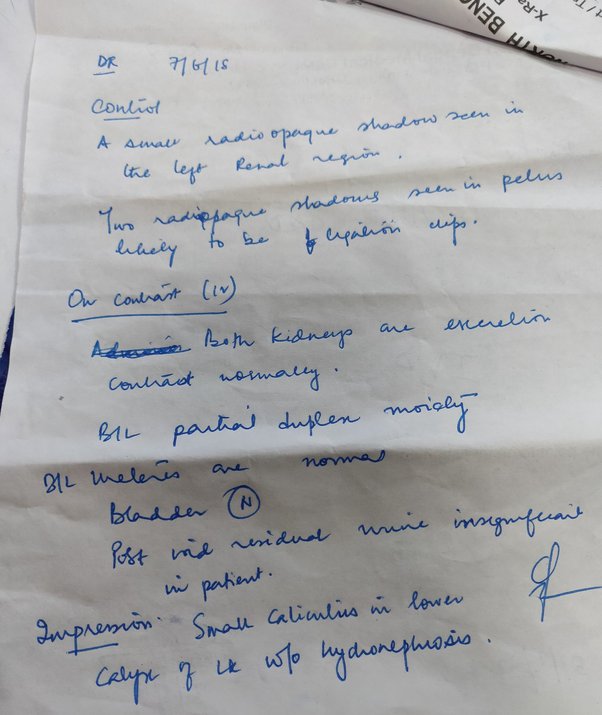 NORTH BENG
X-Ra
DR 7/6/18
Control
A small radioopaque shadow seen in
the left Renal region.
Two radiopaque shadows seen in pelvis
likely to be ligation clips.
On contrast (IV)
Both kidneys are excretion
contract normally.
B/L partial duplex moidty
B/L Ureters are normal
Bladder N
Post void residual urine insignificant
in patient.
Impression: Small caliculus in lower
Calyx of LK w/o hydronephrosis.